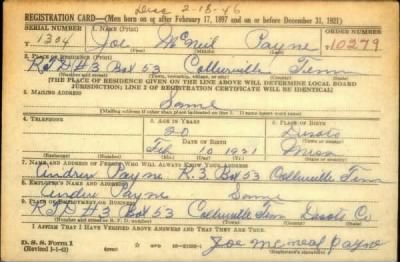 Disc 2-18-46
REGISTRATION CARD—(Men born on or after February 17, 1897 and on or before December 31, 1921)
SERIAL NUMBER 1. NAME (Print) ORDER NUMBER
1304 Joe McNeil Payne 10279
(First) (Middle) (Last)
2. PLACE OF RESIDENCE (Print)
R.F.D #3 Box 53 Collierville Tenn
[THE PLACE OF RESIDENCE GIVEN ON THE LINE ABOVE WILL DETERMINE LOCAL BOARD
JURISDICTION; LINE 2 OF REGISTRATION CERTIFICATE WILL BE IDENTICAL]
3. MAILING ADDRESS
Same
[Mailing address if other than place indicated on line 2. If same insert word same]
4. TELEPHONE 5. AGE IN YEARS 6. PLACE OF BIRTH
20 Desoto
DATE OF BIRTH (Town or county)
Feb 10 1921 Miss
(Exchange) (Number) (Mo.) (Day) (Yr.) (State or country)
7. NAME AND ADDRESS OF PERSON WHO WILL ALWAYS KNOW YOUR ADDRESS
Andrew Payne R.3 Box 53 Collierville Tenn
8. EMPLOYER'S NAME AND ADDRESS
Andrew Payne Same
9. PLACE OF EMPLOYMENT OR BUSINESS
R.F.D #3 Box 53 Collierville Tenn Desoto Co
(Number and street or R. F. D. number) (Town) (County) (State)
I AFFIRM THAT I HAVE VERIFIED ABOVE ANSWERS AND THAT THEY ARE TRUE.
D. S. S. Form 1
(Revised 1-1-42) (over) Joe McNeal Payne